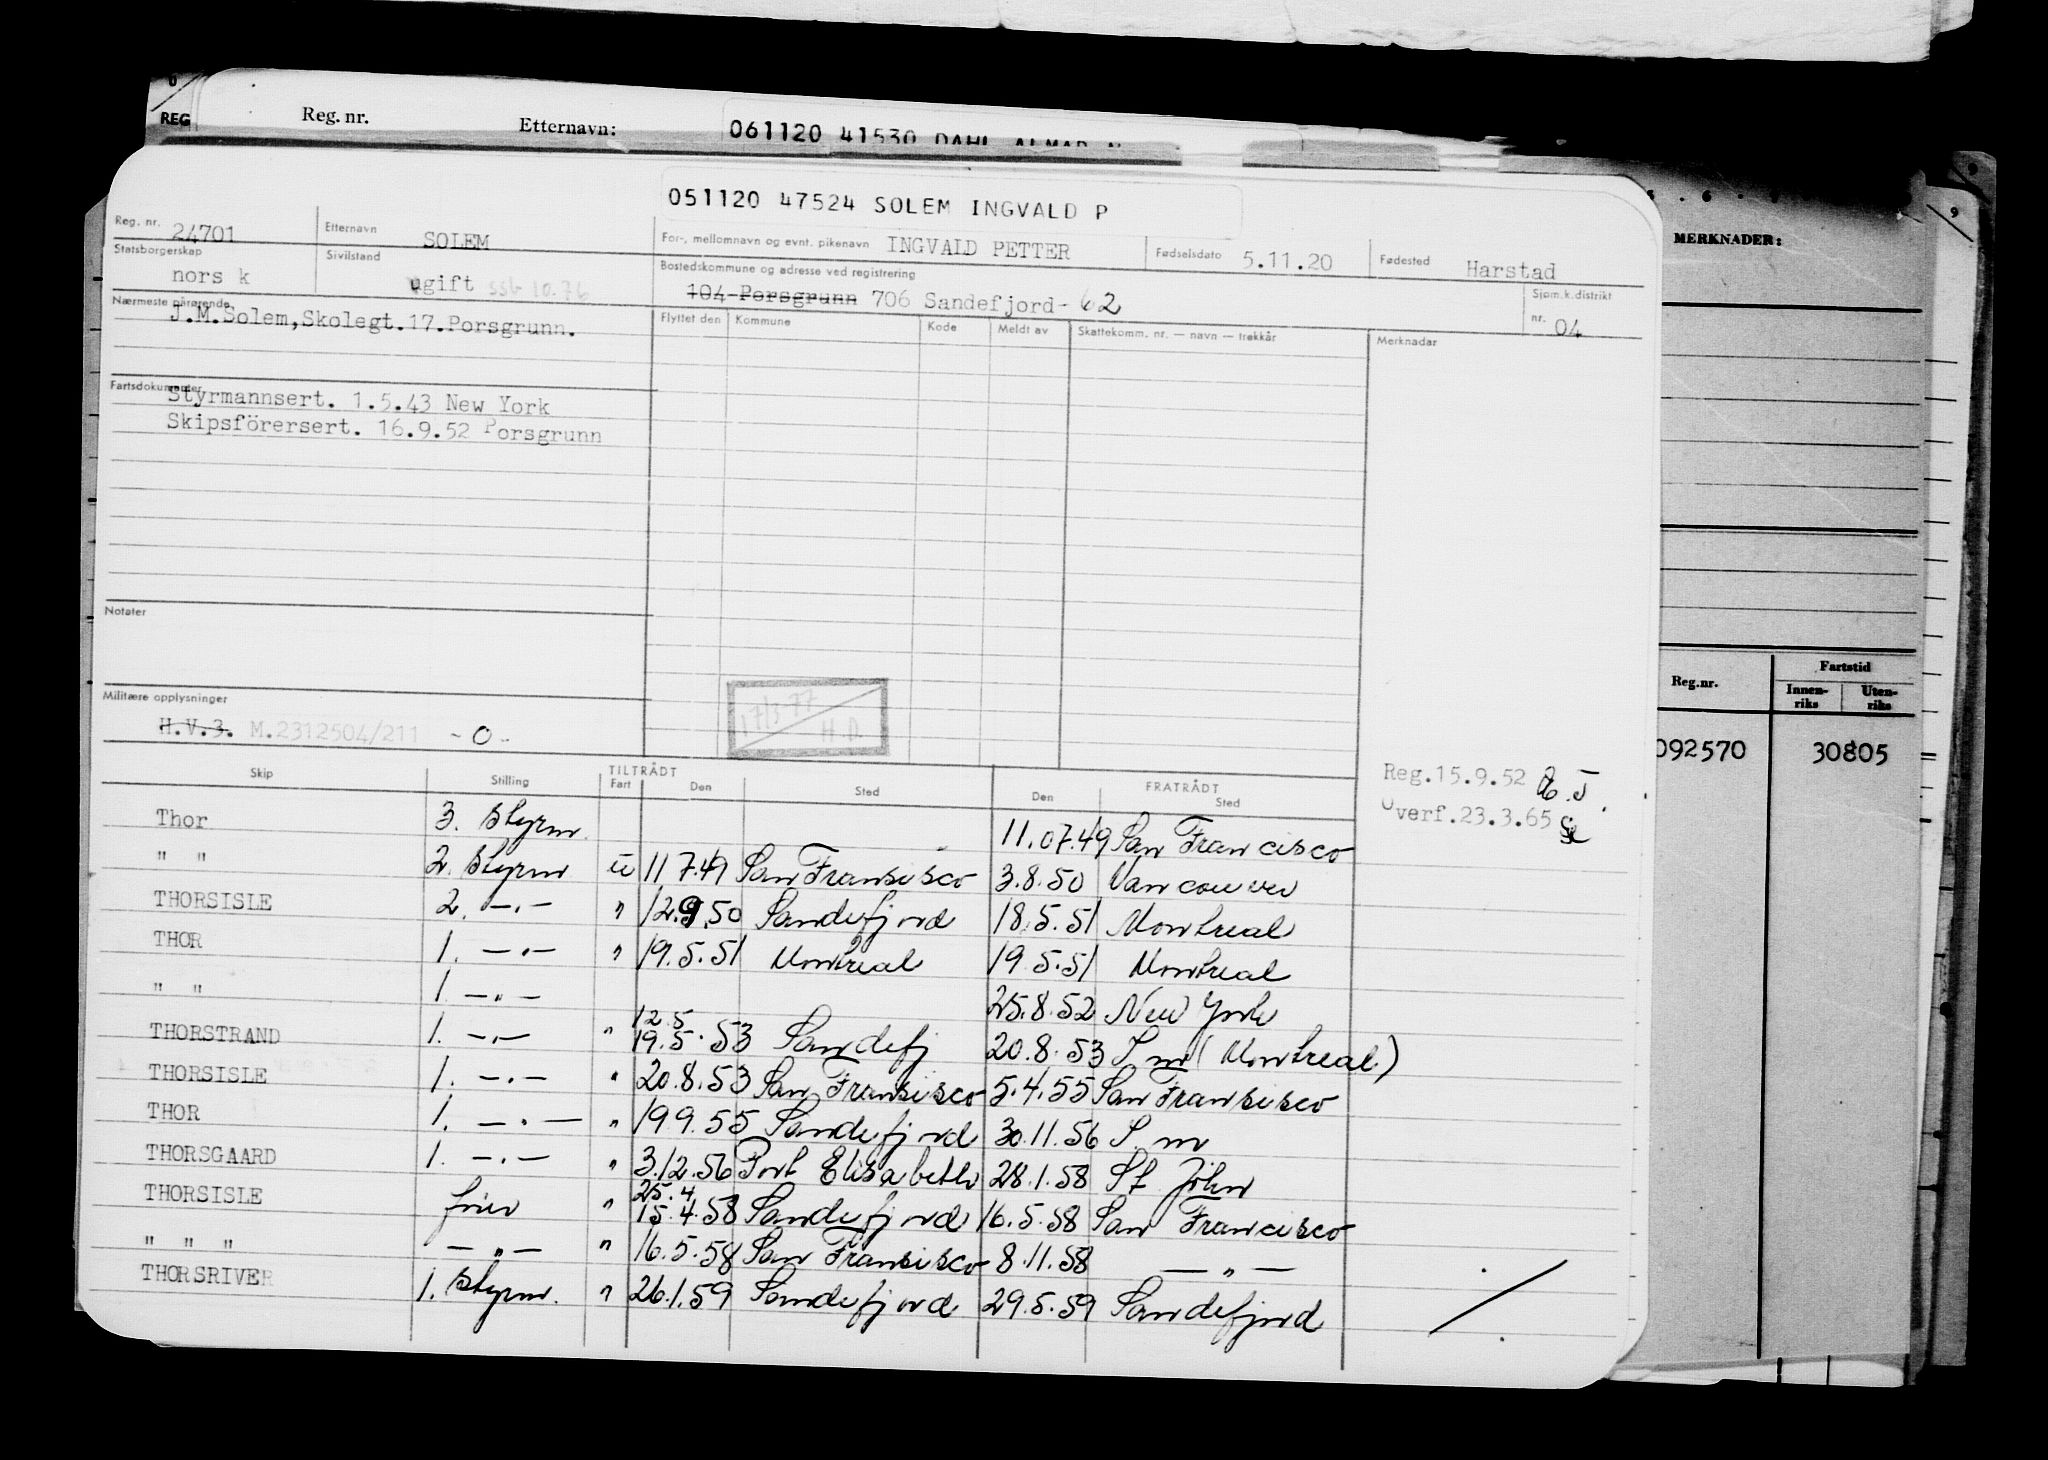 REG Reg. nr. Etternavn: 061120 41530 DAHL ALMAR
MERKNADER:
051120 47524 SOLEM INGVALD P
Reg. nr. 24701 Etternavn SOLEM For-, mellomnavn og evnt. pikenavn INGVALD PETTER Fødselsdato 5.11.20 Fødested Harstad
Statsborgerskap norsk Sivilstand ugift ssb 10.76 Bostedskommune og adresse ved registrering 104 Porsgrunn 706 Sandefjord - 62 Sjøm.k.distrikt nr. 04
Nærmeste pårørende J.M.Solem,Skolegt.17.Porsgrunn.
Flyttet den Kommune Kode Meldt av Skattekomm. nr. — navn — trekkår Merknadar
Fartsdokumenter
Styrmannsert. 1.5.43 New York
Skipsförersert. 16.9.52 Porsgrunn
Notater
Militære opplysninger
H.V.3. M.2312504/211 - 0 -
17/3-77 H.D.
Reg.nr. Fartstid
Innen-riks Uten-riks
092570 30805
Reg.15.9.52
Overf.23.3.65
Skip Stilling TILTRÅDT Fart Den Sted FRATRÅDT Den Sted
Thor 3. Styrm. 11.07.49 San Francisco
" " 2. Styrm u 11 7.49 San Fransisco 3.8.50 Vancouver
THORSISLE 2. -"- " 12.9.50 Sandefjord 18.5.51 Montreal
THOR 1. -"- " 19.5.51 Montreal 19.5.51 Montreal
" " 1. -"- 25.8.52 New York
THORSTRAND 1. -"- " 12.5 19.5.53 Sandefj 20.8.53 S.m (Montreal)
THORSISLE 1. -"- " 20.8.53 San Fransisco 5.4.55 San Fransisco
THOR 1. -"- " 19.9.55 Sandefjord 30.11.56 S.m
THORSGAARD 1. -"- " 3.12.56 Port Elisabeth 28.1.58 St John
THORSISLE fører " 25.4 15.4.58 Sandefjord 16.5.58 San Francisco
" " " -"- " 16.5.58 San Fransisco 8.11.58 -"-
THORSRIVER 1. Styrm. " 26.1.59 Sandefjord 29.5.59 Sandefjord